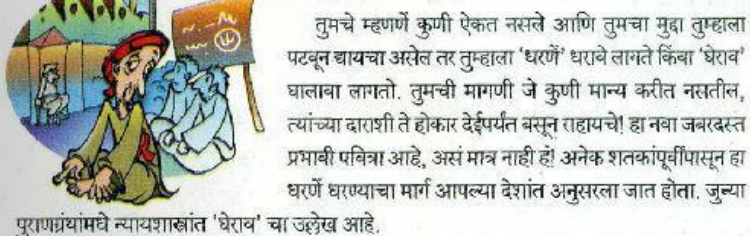 तुमचे म्हणणें कुणी ऐकत नसले आणि तुमचा मुद्दा तुम्हाला
पटवून द्यायचा असेल तर तुम्हाला ‘धरणें’ धरावे लागते किंवा ‘घेराव’
घालावा लागतो. तुमची मागणी जे कुणी मान्य करीत नसतील,
त्यांच्या दाराशी ते होकार देईपर्यंत बसून राहायचे! हा नवा जबरदस्त
प्रभावी पवित्रा आहे, असं मात्र नाही हं! अनेक शतकांपूर्वीपासून हा
धरणें धरण्याचा मार्ग आपल्या देशांत अनुसरला जात होता. जुन्या
पुराणग्रंथांमधे न्यायशास्त्रांत ‘घेराव’ चा उल्लेख आहे.